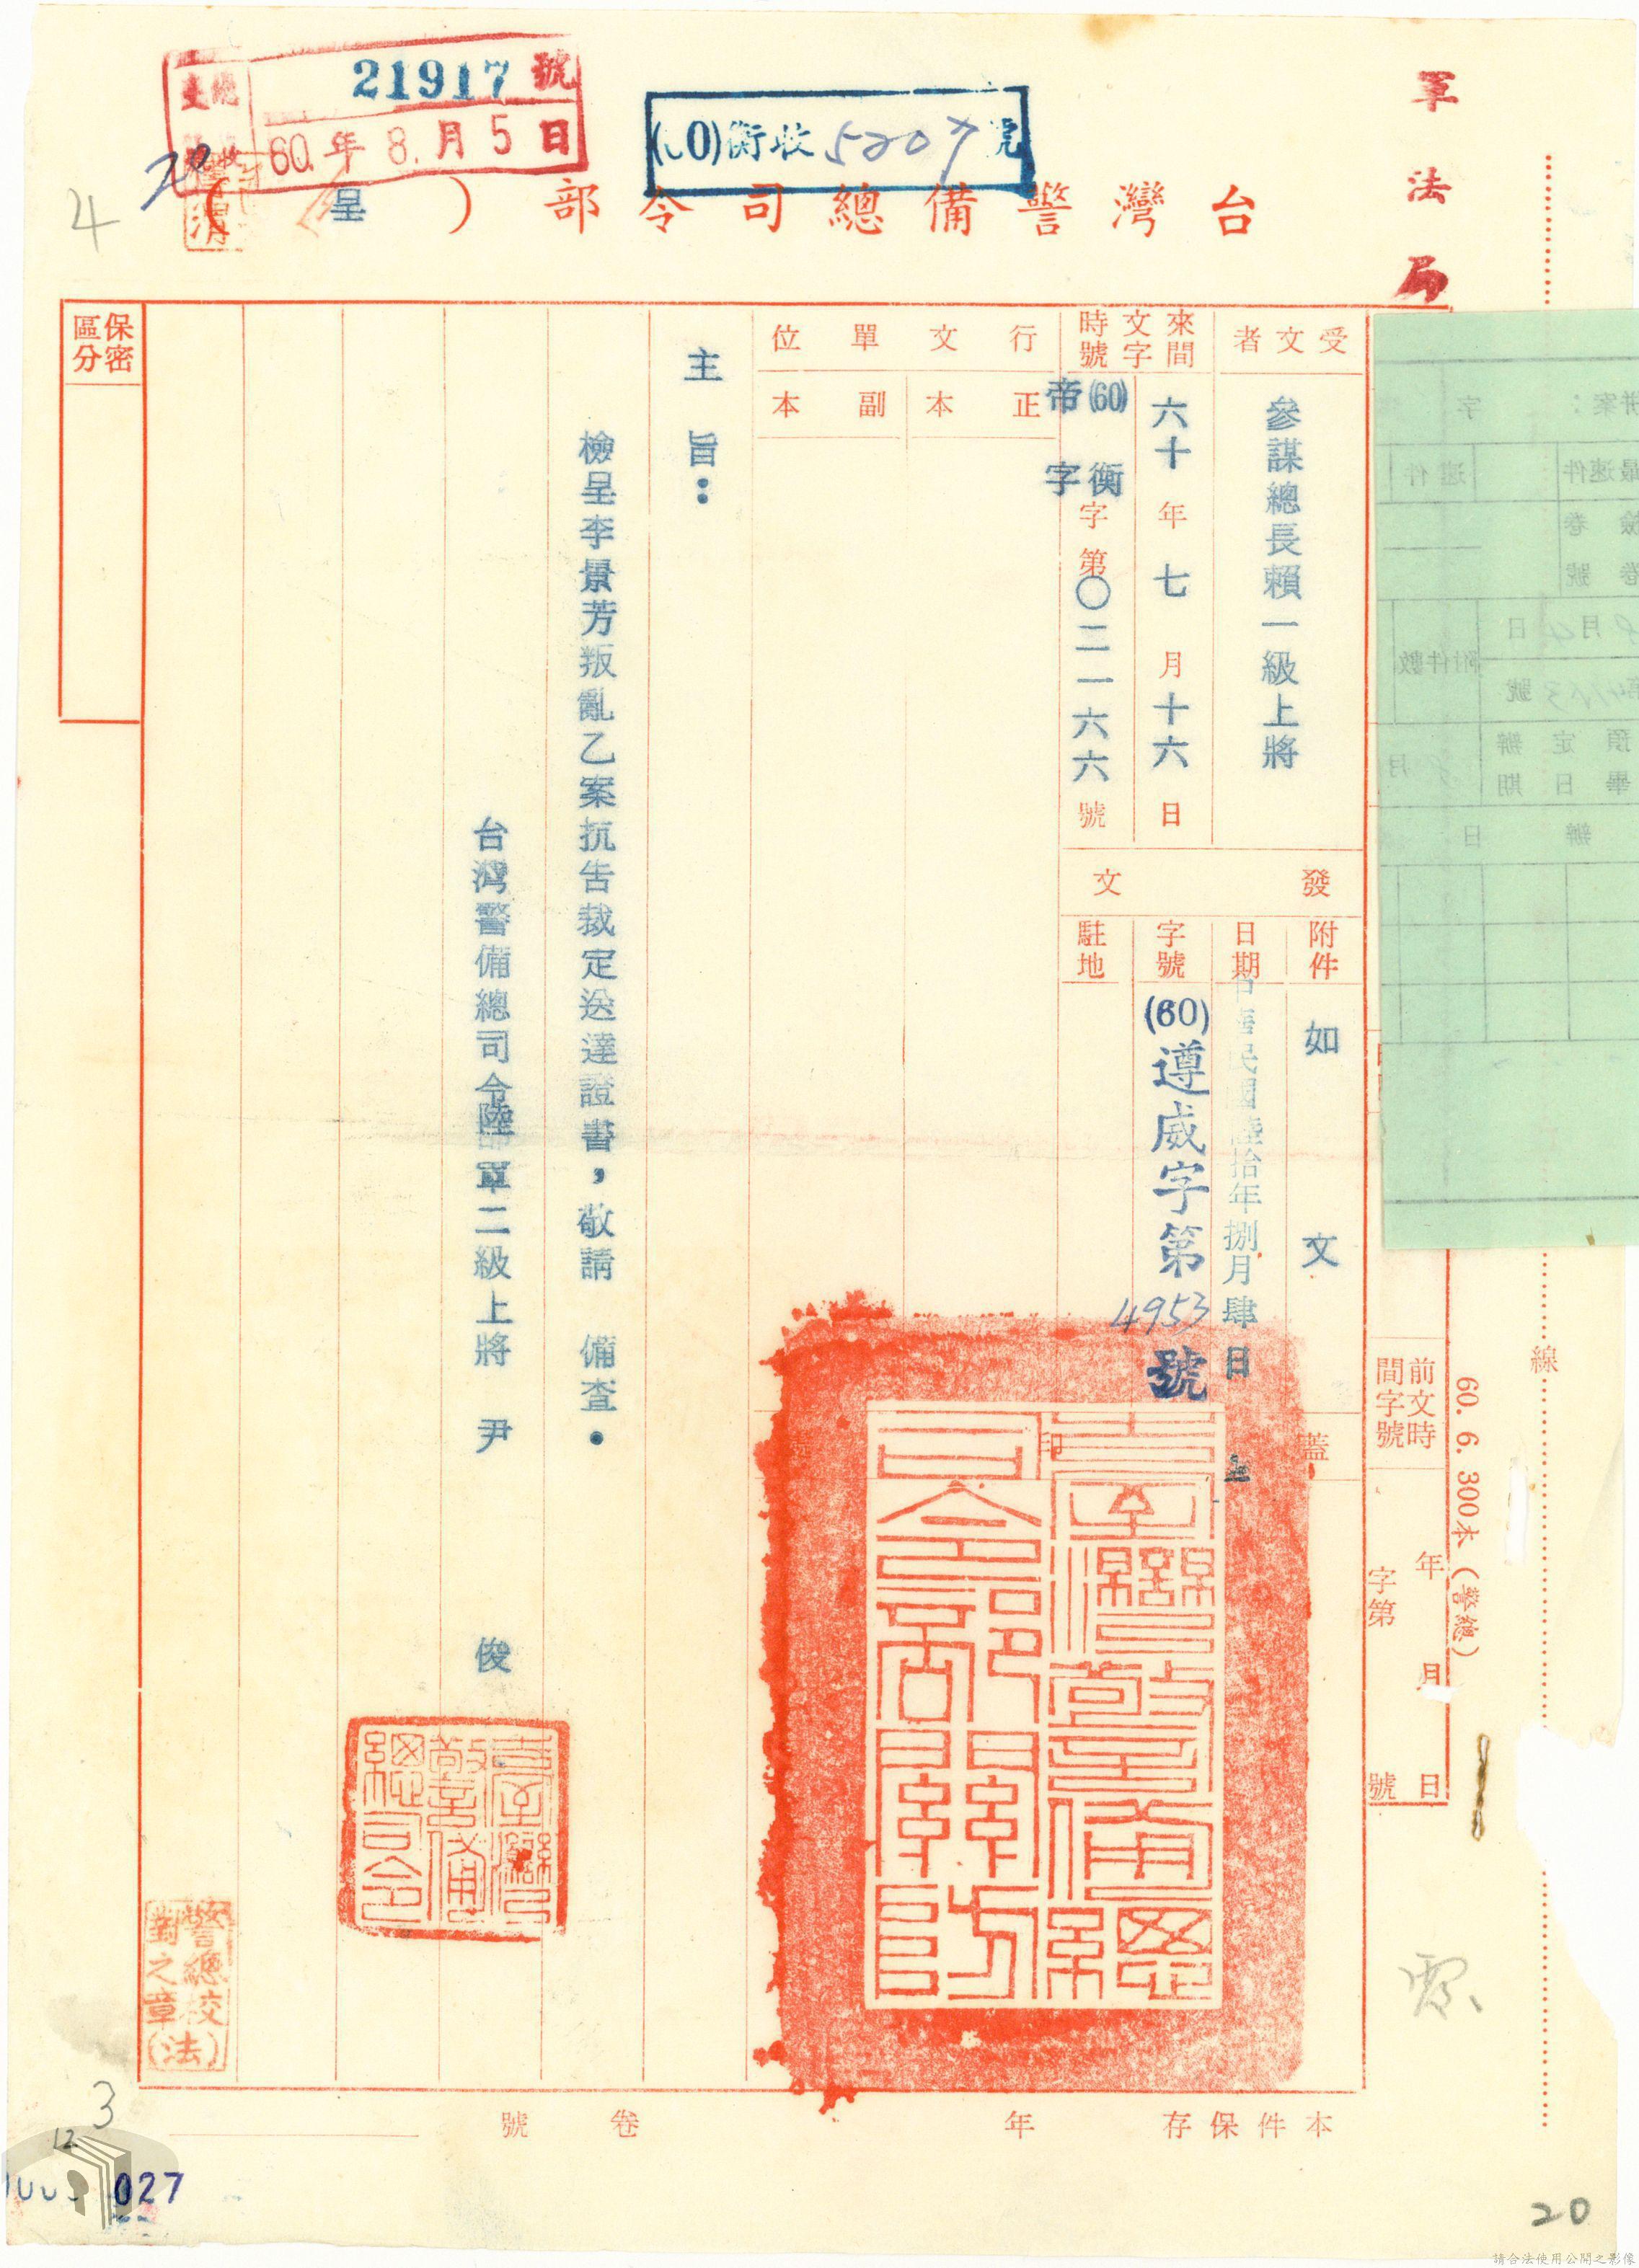 軍法局
21917號
60.年8.月5日
(60)衡收5207號
台灣警備總司令部（呈）
受文者
參謀總長賴一級上將
來文時間字號
六十年七月十六日
(60)衡帝字字第〇二一六六號
發文
附件
如文
日期
中華民國陸拾年捌月肆日
字號
(60)遵威字第4953號
駐地
蓋印
行文單位
正本
副本
主旨：
檢呈李景芳叛亂乙案抗告裁定送達證書，敬請　備查．
台灣警備總司令陸軍二級上將　尹　俊
臺灣警備總司令部關防
臺灣警備總司令
警總校對之章(法)
保密區分
前文時間字號
年月日
字第號
60. 6. 300本（警總）
線
併案：字
最速件
速件
卷號
8月4日
附件數
預定辦畢日期
月
日
辦
本件保存年
卷號
4
20
3
12
027
20
請合法使用公開之影像